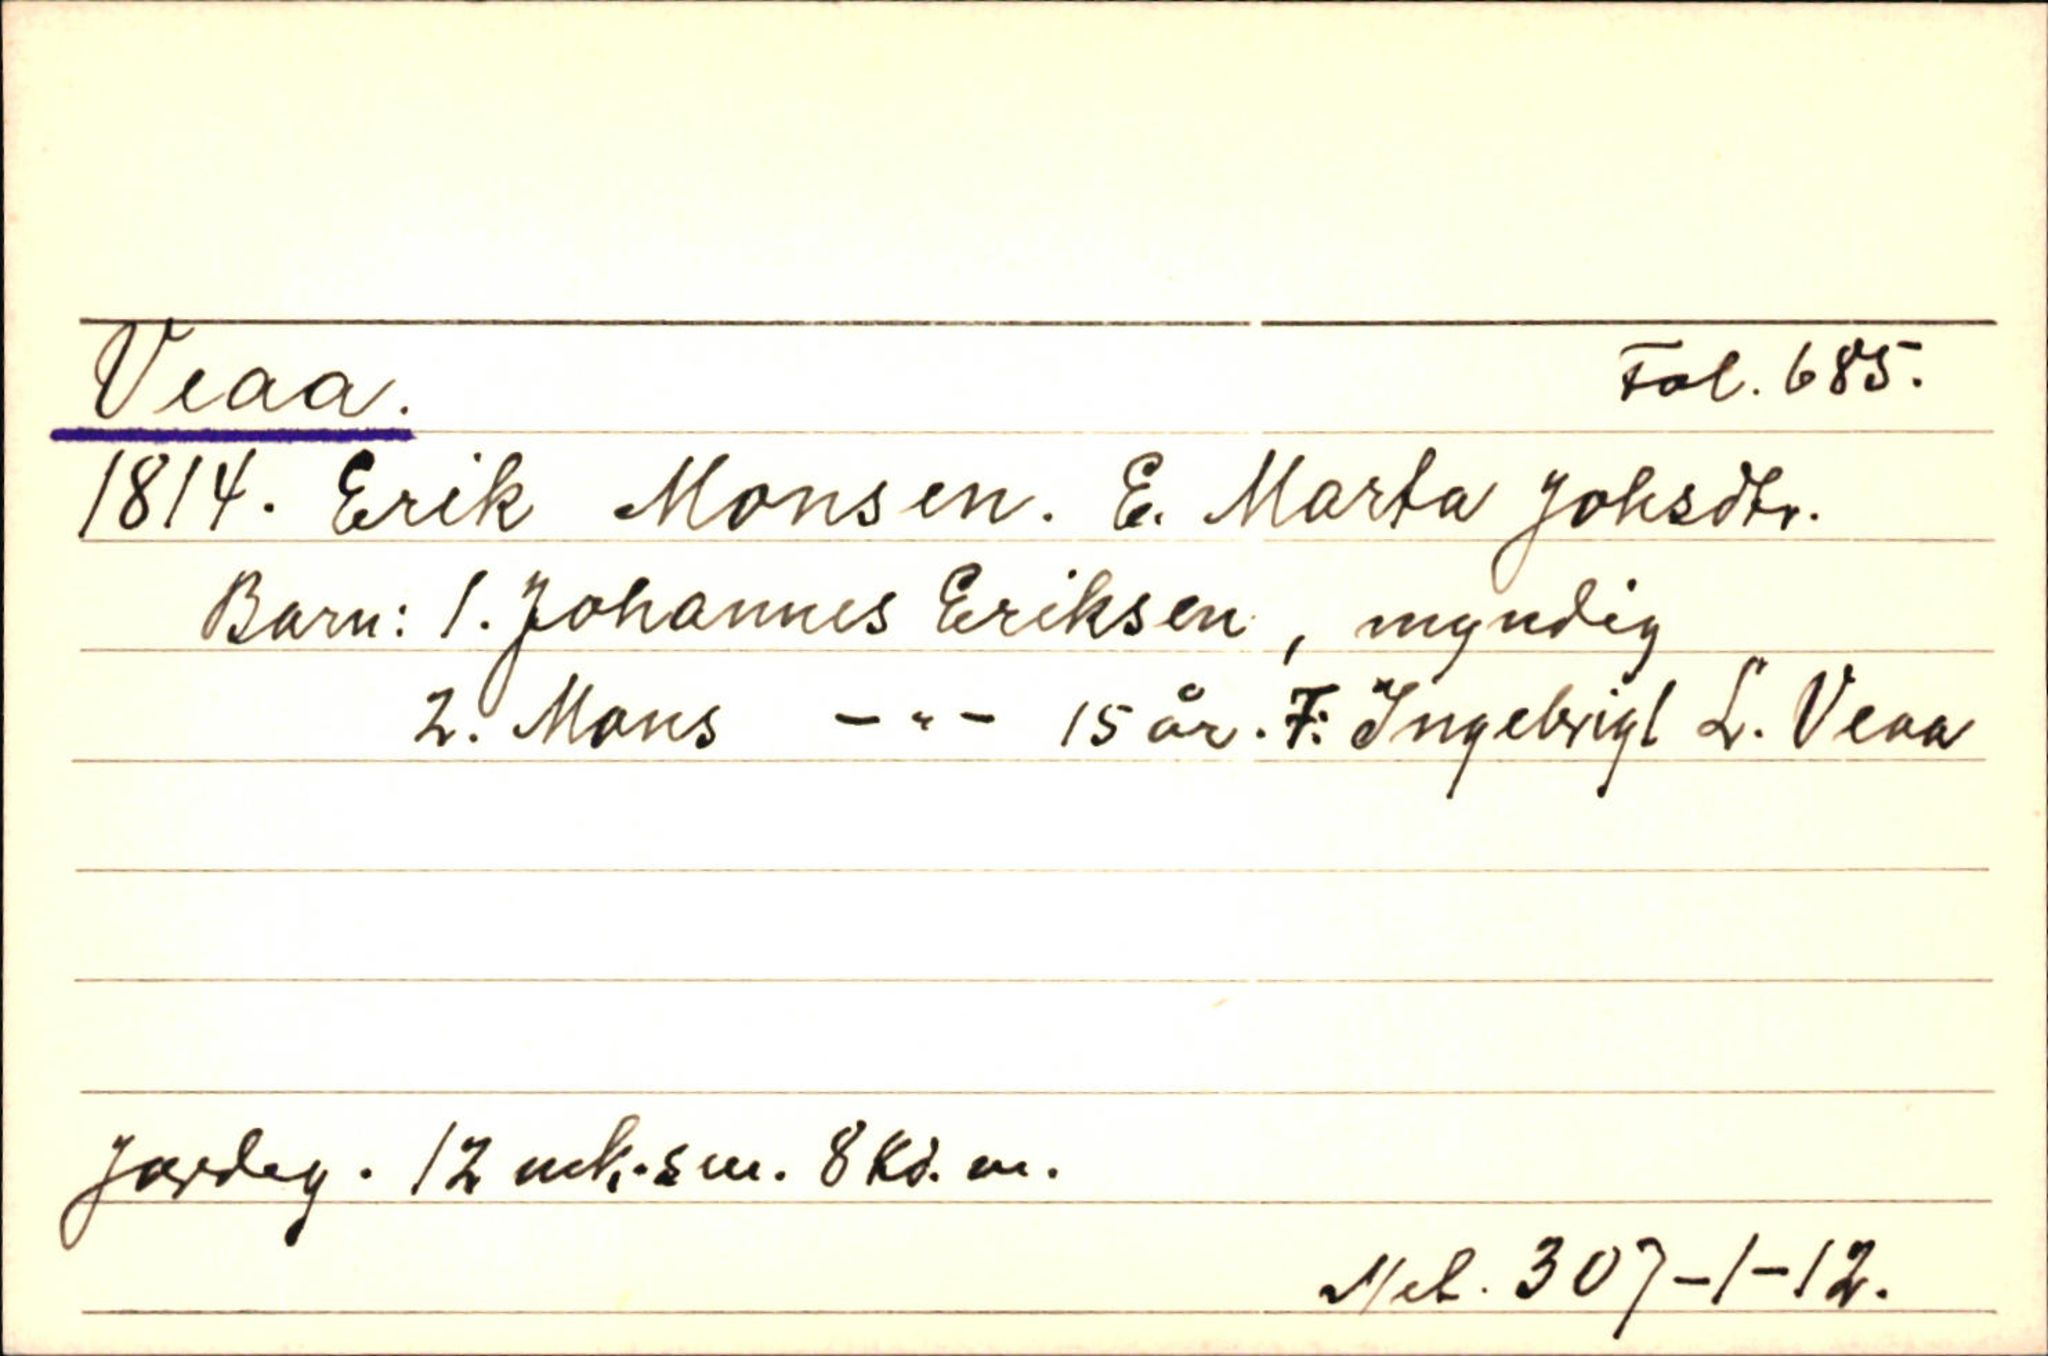 Veaa. Fol. 685.
1814. Erik Monsen. E. Marta Johsdtr.
Barn: 1. Johannes Eriksen, myndig
2. Mons -"- 15 år. F: Ingebrigt L. Veaa
Jordeg. 12 mk. sm. 8 kd. m.
Net. 307-1-12.